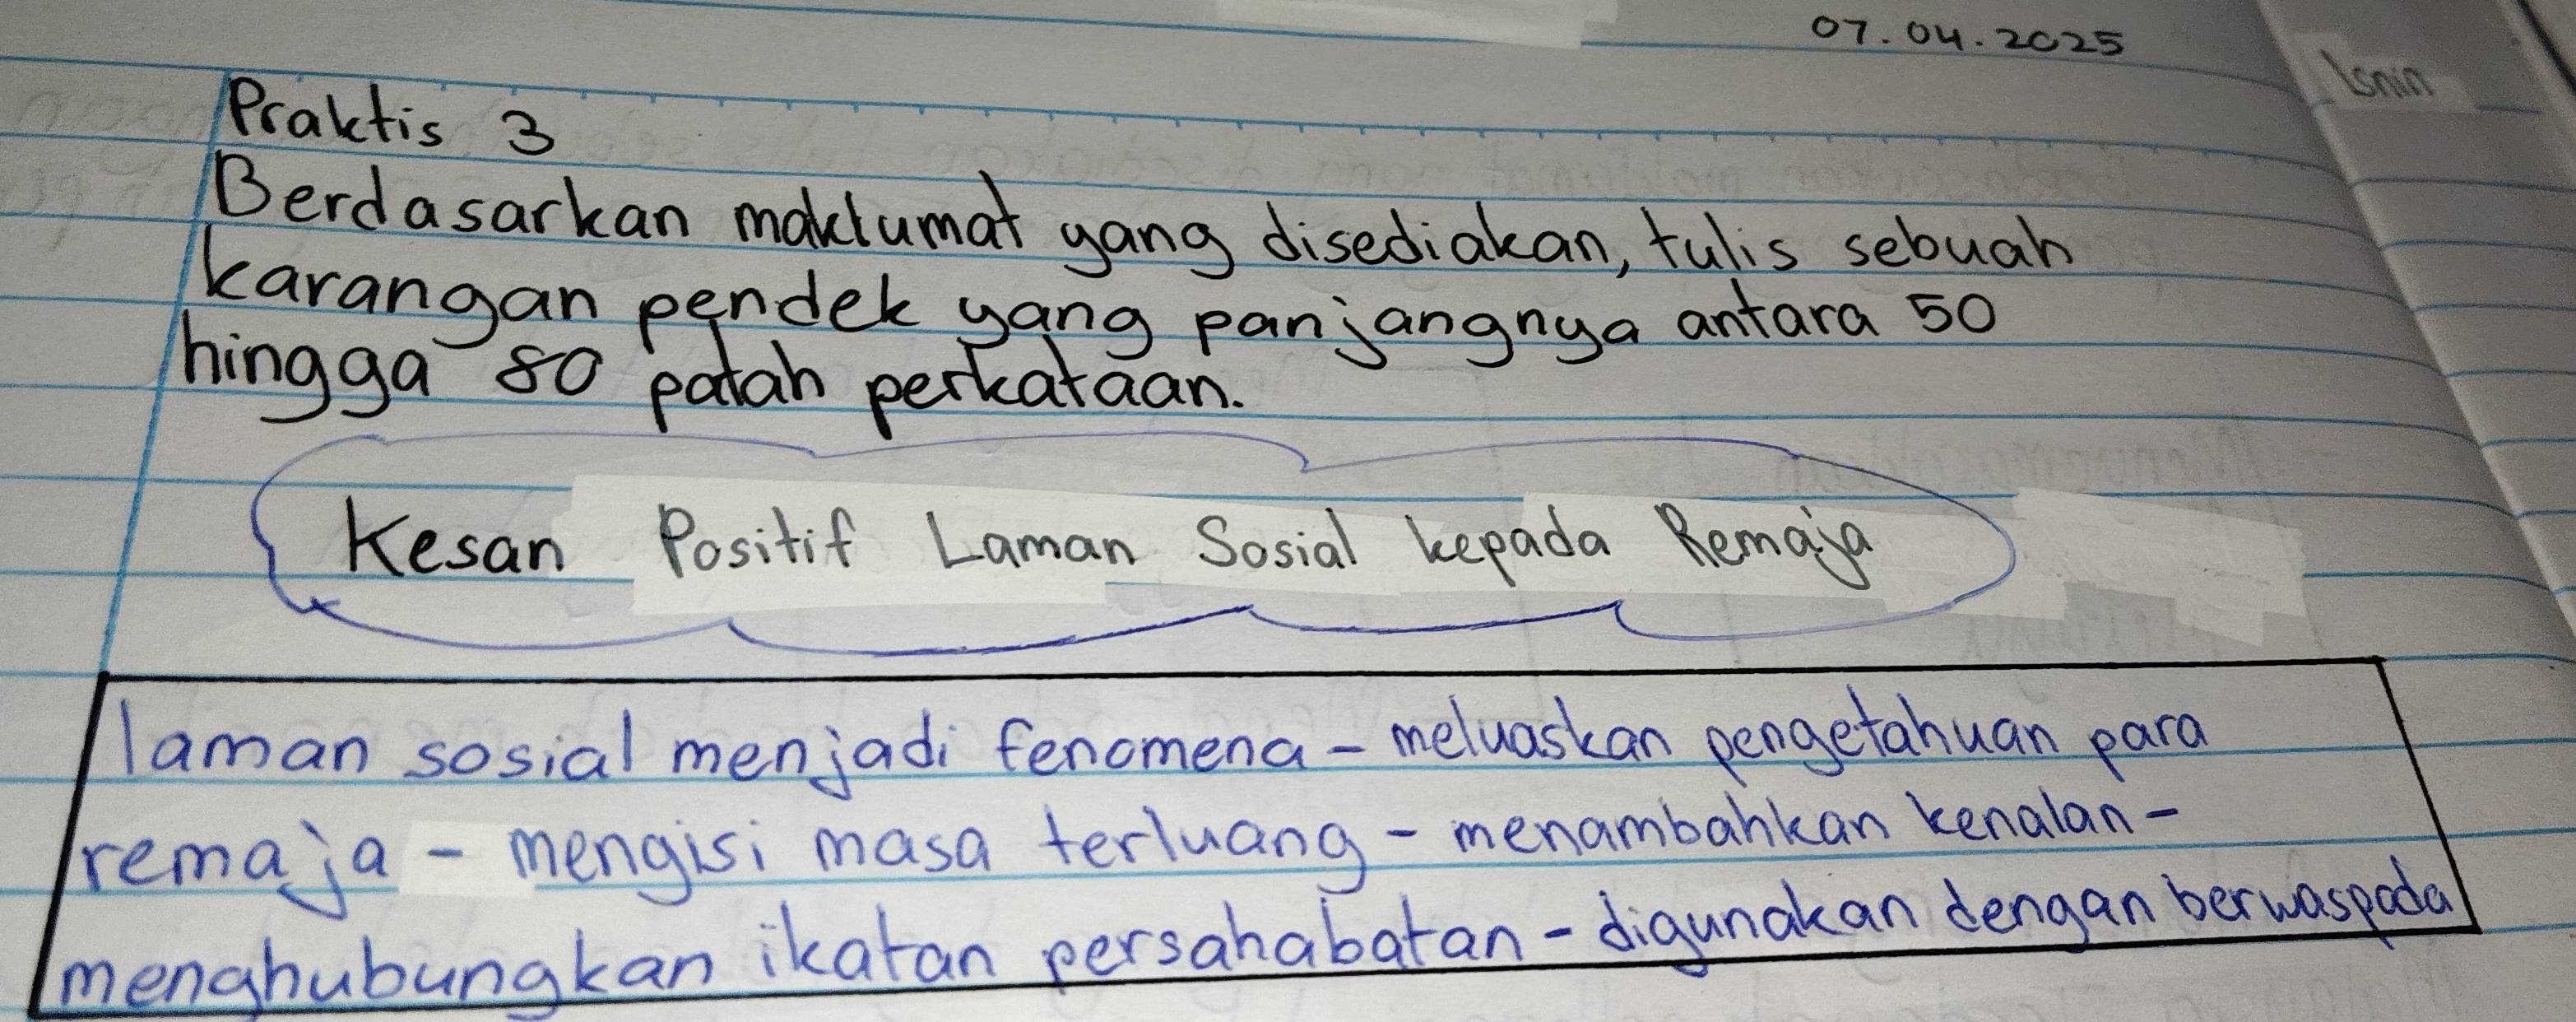 07.04.2025
Isnin
Praktis 3
Berdasarkan maklumat yang disediakan, tulis sebuah
karangan pendek yang panjangnya antara 50
hingga 80 patah perkataan.
Kesan Positif Laman Sosial kepada Remaja
laman sosial menjadi fenomena - meluaskan pengetahuan para
remaja - mengisi masa terluang - menambahkan kenalan -
menghubungkan ikatan persahabatan - digunakan dengan berwaspada